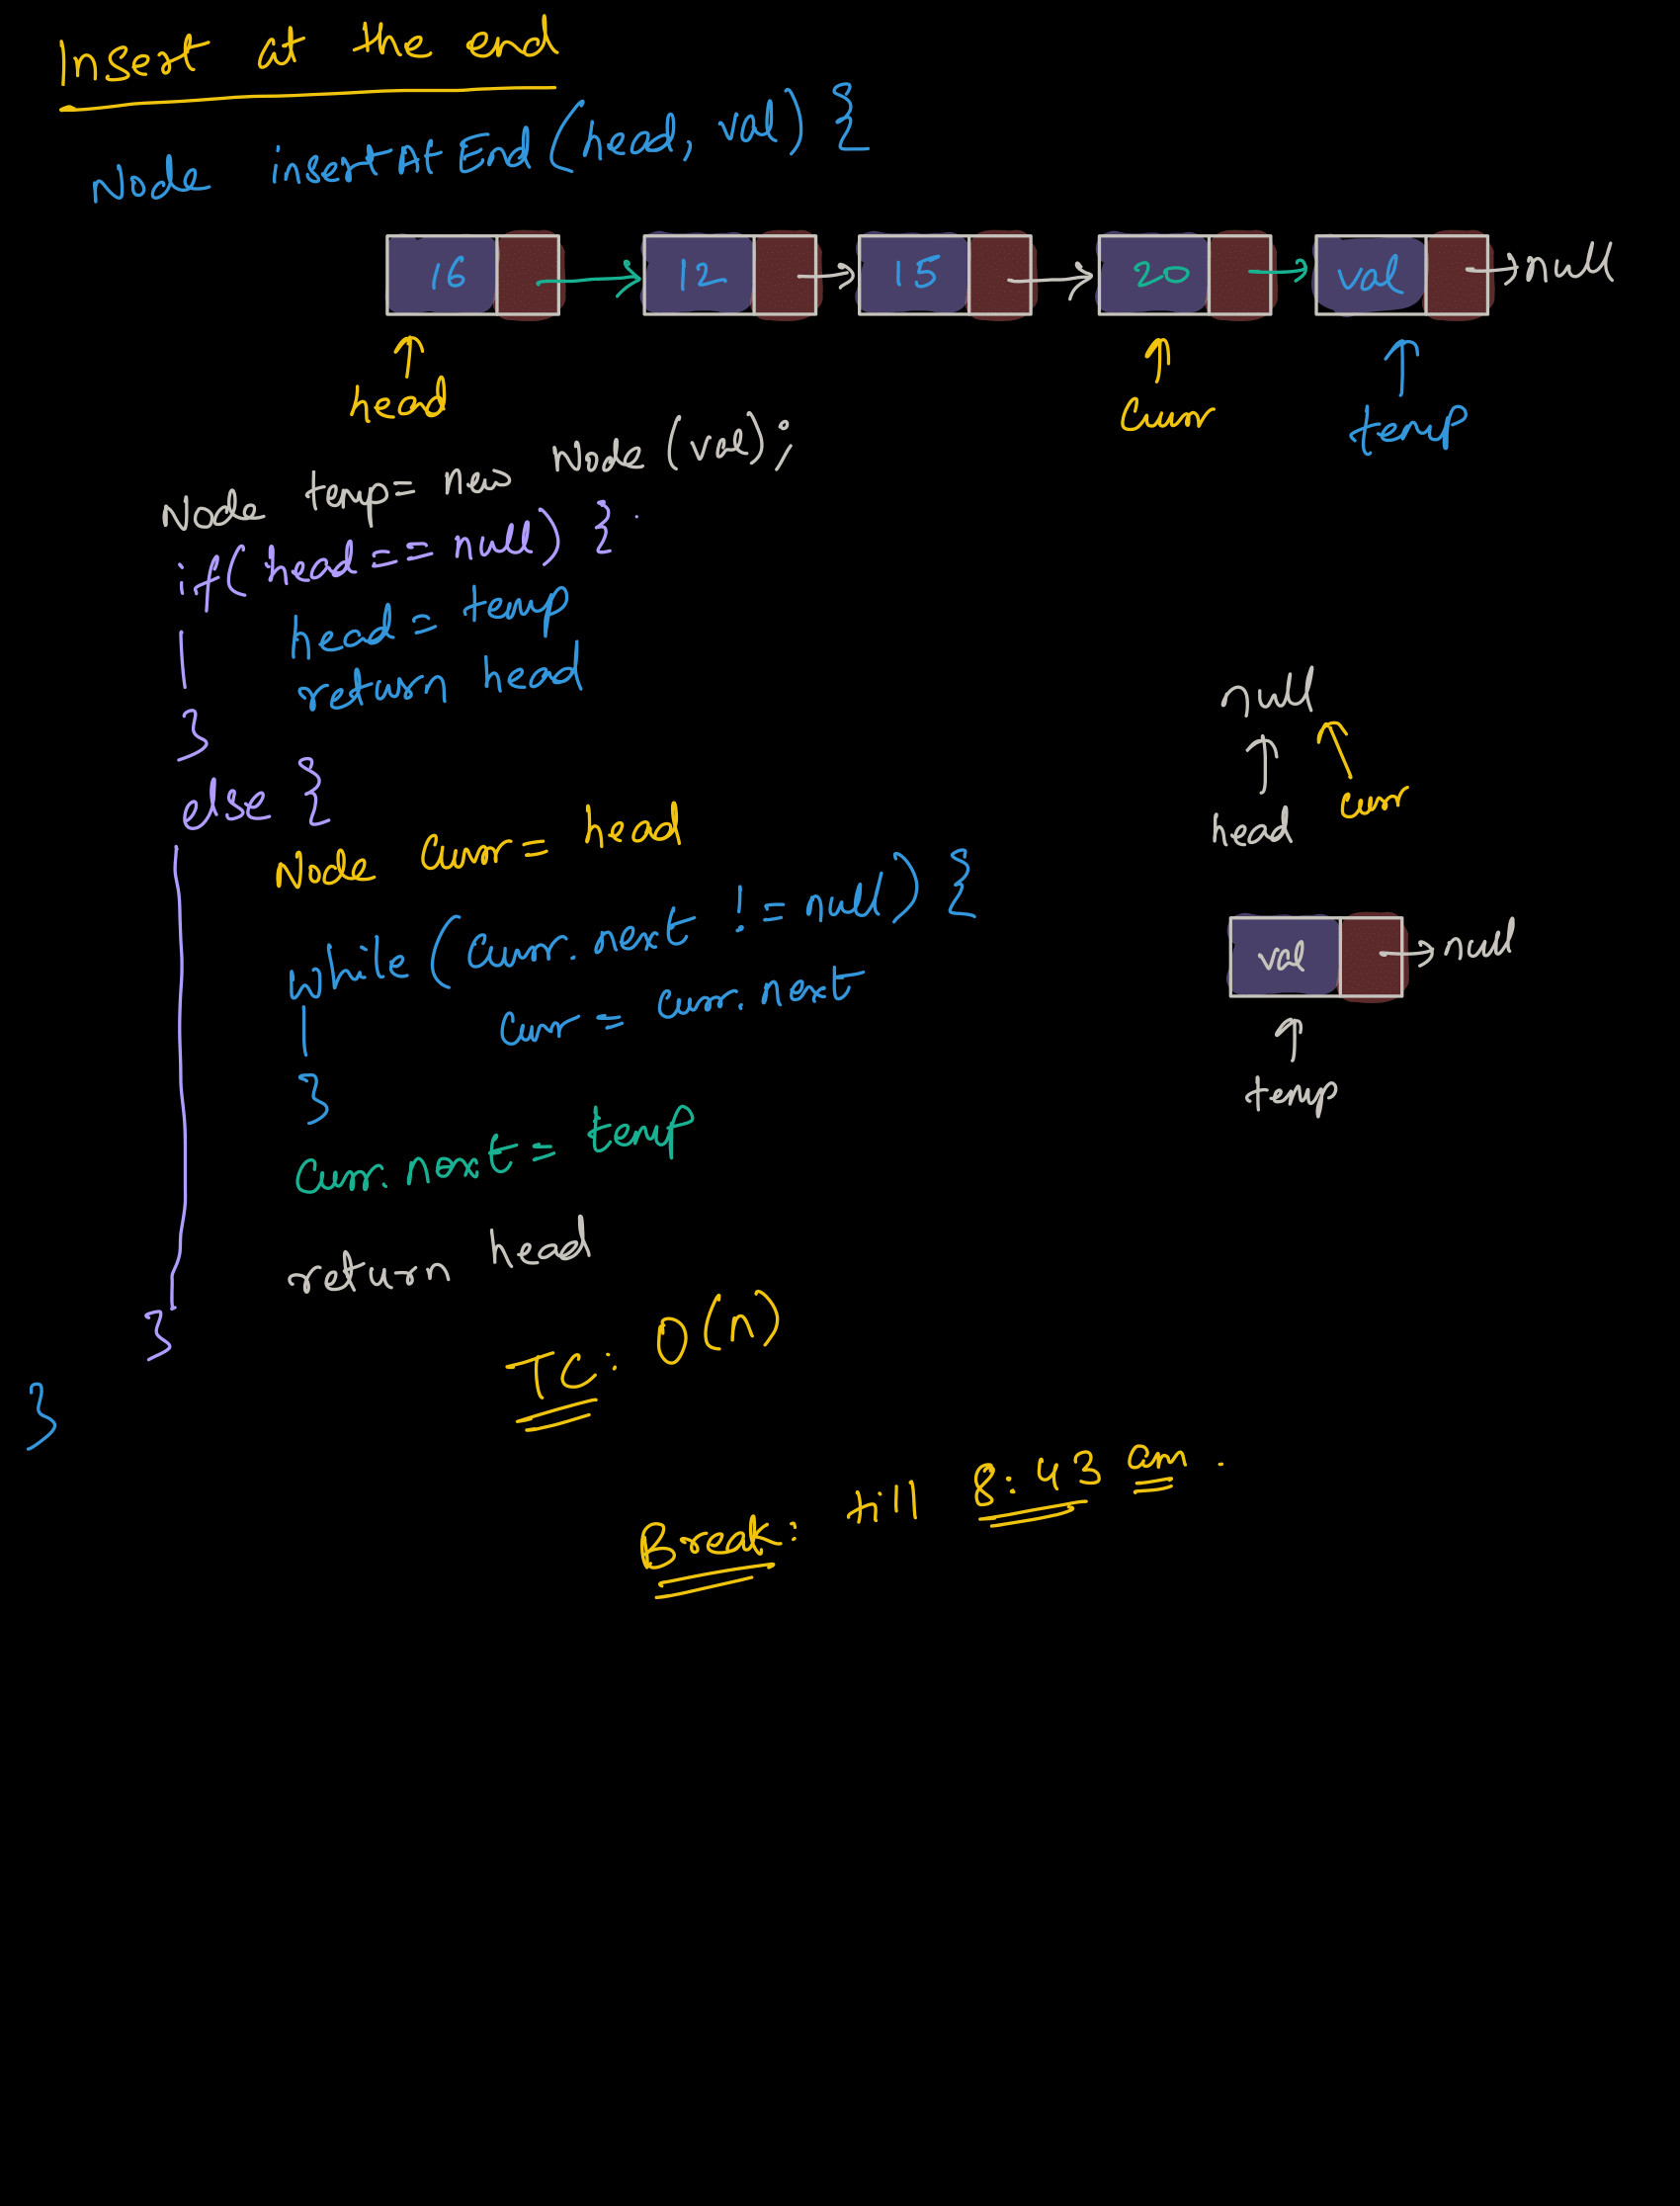 Insert at the end
Node insertAtEnd(head, val) {
16 12 15 20 val null
head curr temp
Node temp = new Node(val);
if(head == null) {
head = temp
return head
}
else {
Node curr = head
while (curr.next != null) {
curr = curr.next
}
curr.next = temp
return head
}
}
null
head curr
val null
temp
TC: O(n)
Break: till 8:43 am.